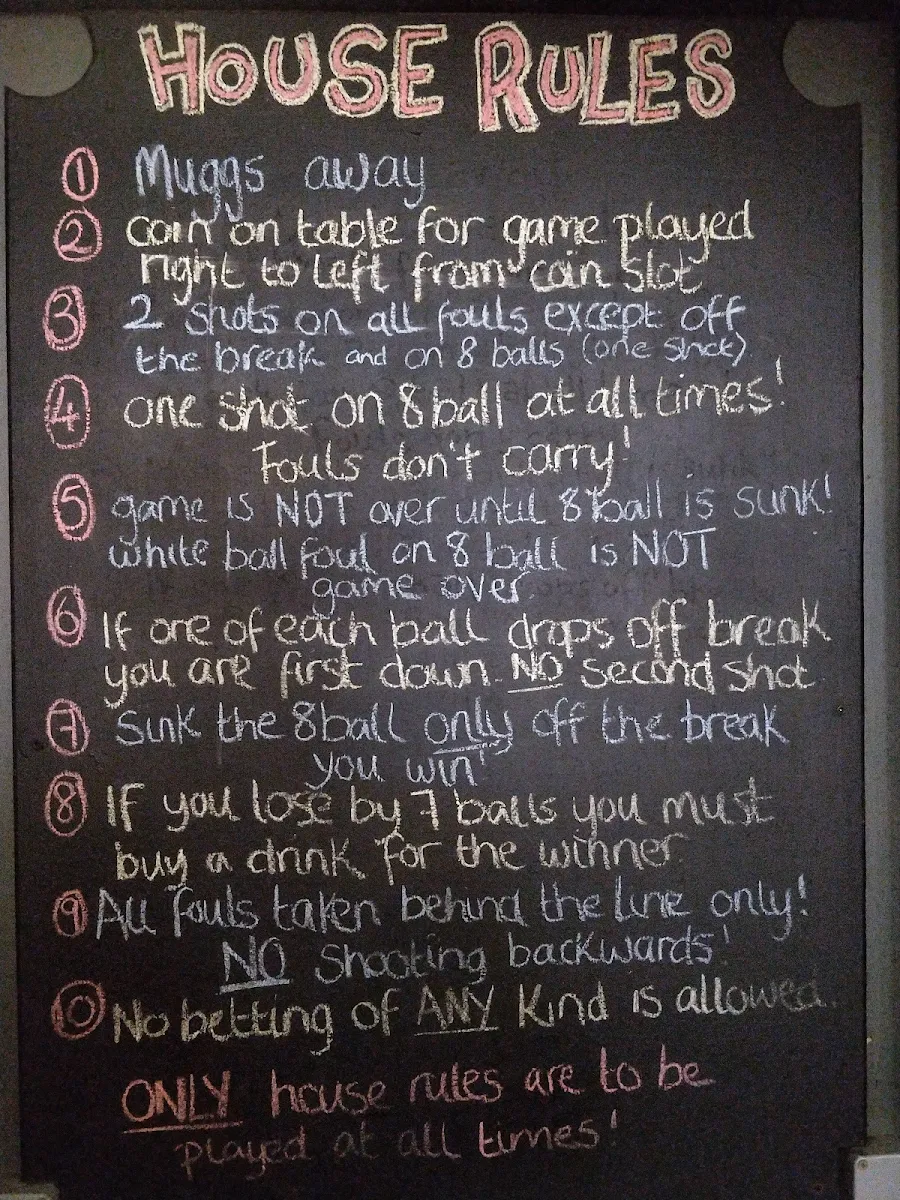 HOUSE RULES
1 Muggs away
2 coin on table for game played
right to left from coin slot
3 2 shots on all fouls except off
the break and on 8 balls (one shot)
4 one shot on 8 ball at all times!
Fouls don't carry!
5 game is NOT over until 8 ball is sunk!
white ball foul on 8 ball is NOT
game over
6 If one of each ball drops off break
you are first down. NO second shot
7 Sink the 8 ball only off the break
you win!
8 If you lose by 7 balls you must
buy a drink for the winner
9 All fouls taken behind the line only!
NO Shooting backwards!
10 No betting of ANY kind is allowed.
ONLY house rules are to be
played at all times!